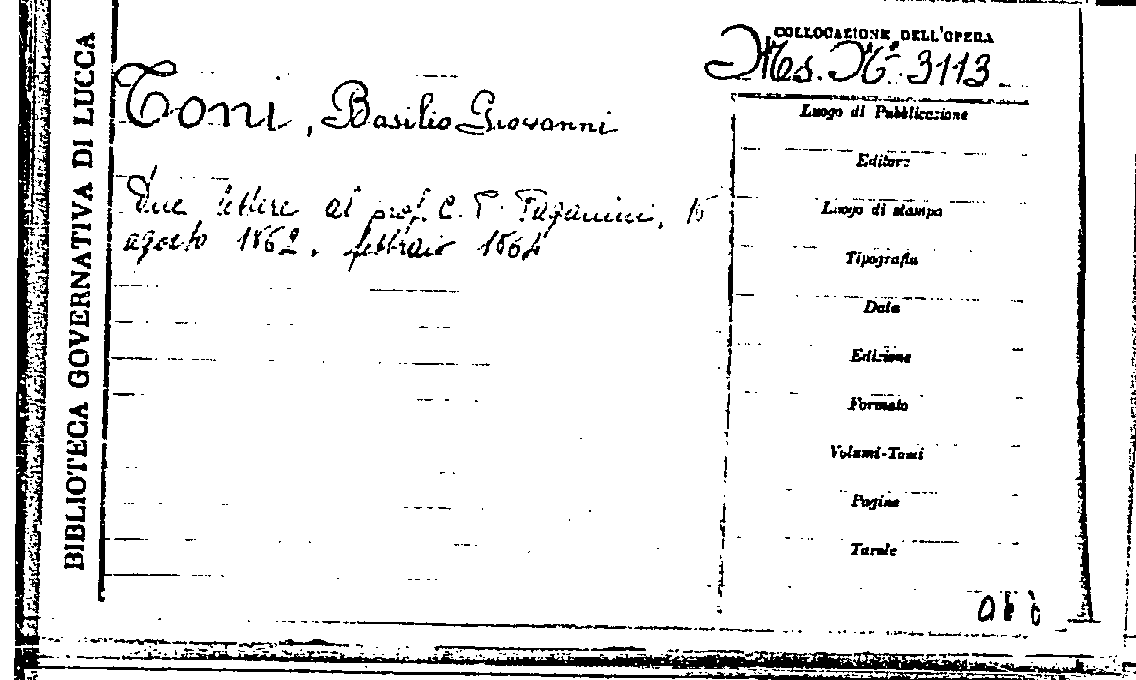 BIBLIOTECA GOVERNATIVA DI LUCCA
COLLOCAZIONE DELL'OPERA
Ms. N.º 3113
Toni, Basilio Giovanni
Due lettere al prof. C. P. Paganini, 15
agosto 1862, febbraio 1864
Luogo di Pubblicazione
Editore
Luogo di stampa
Tipografia
Data
Edizione
Formato
Volumi-Tomi
Pagine
Tavole